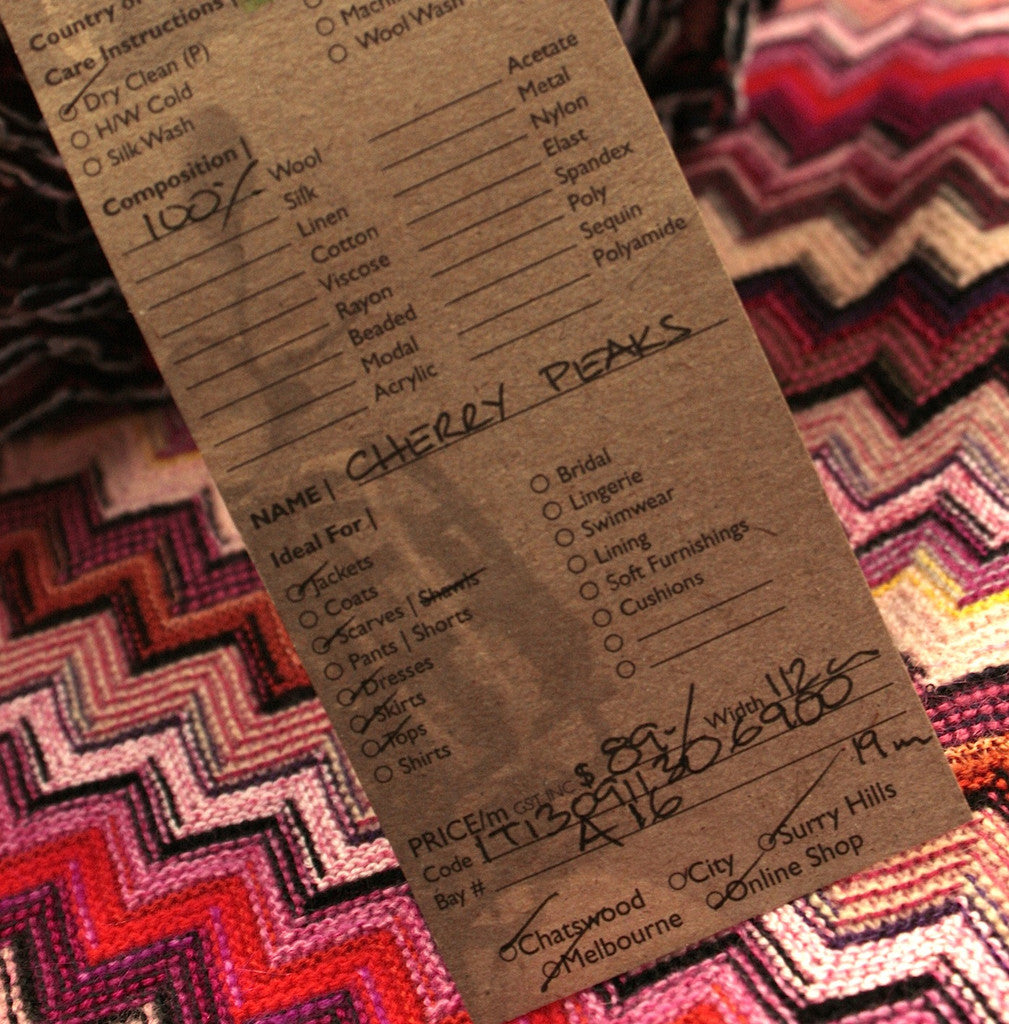 Country of
Care Instructions |
Dry Clean (P)
H/W Cold
Silk Wash
Wool Wash
Composition |
100% Wool
Silk
Linen
Cotton
Viscose
Rayon
Beaded
Modal
Acrylic
Acetate
Metal
Nylon
Elast
Spandex
Poly
Sequin
Polyamide
NAME | CHERRY PEAKS
Ideal For |
Jackets
Coats
Scarves | Shawls
Pants | Shorts
Dresses
Skirts
Tops
Shirts
Bridal
Lingerie
Swimwear
Lining
Soft Furnishings
Cushions
PRICE/m GST INC $ 89-/ Width 112
Code
Bay # A16
19m
Chatswood City Surry Hills
Melbourne Online Shop